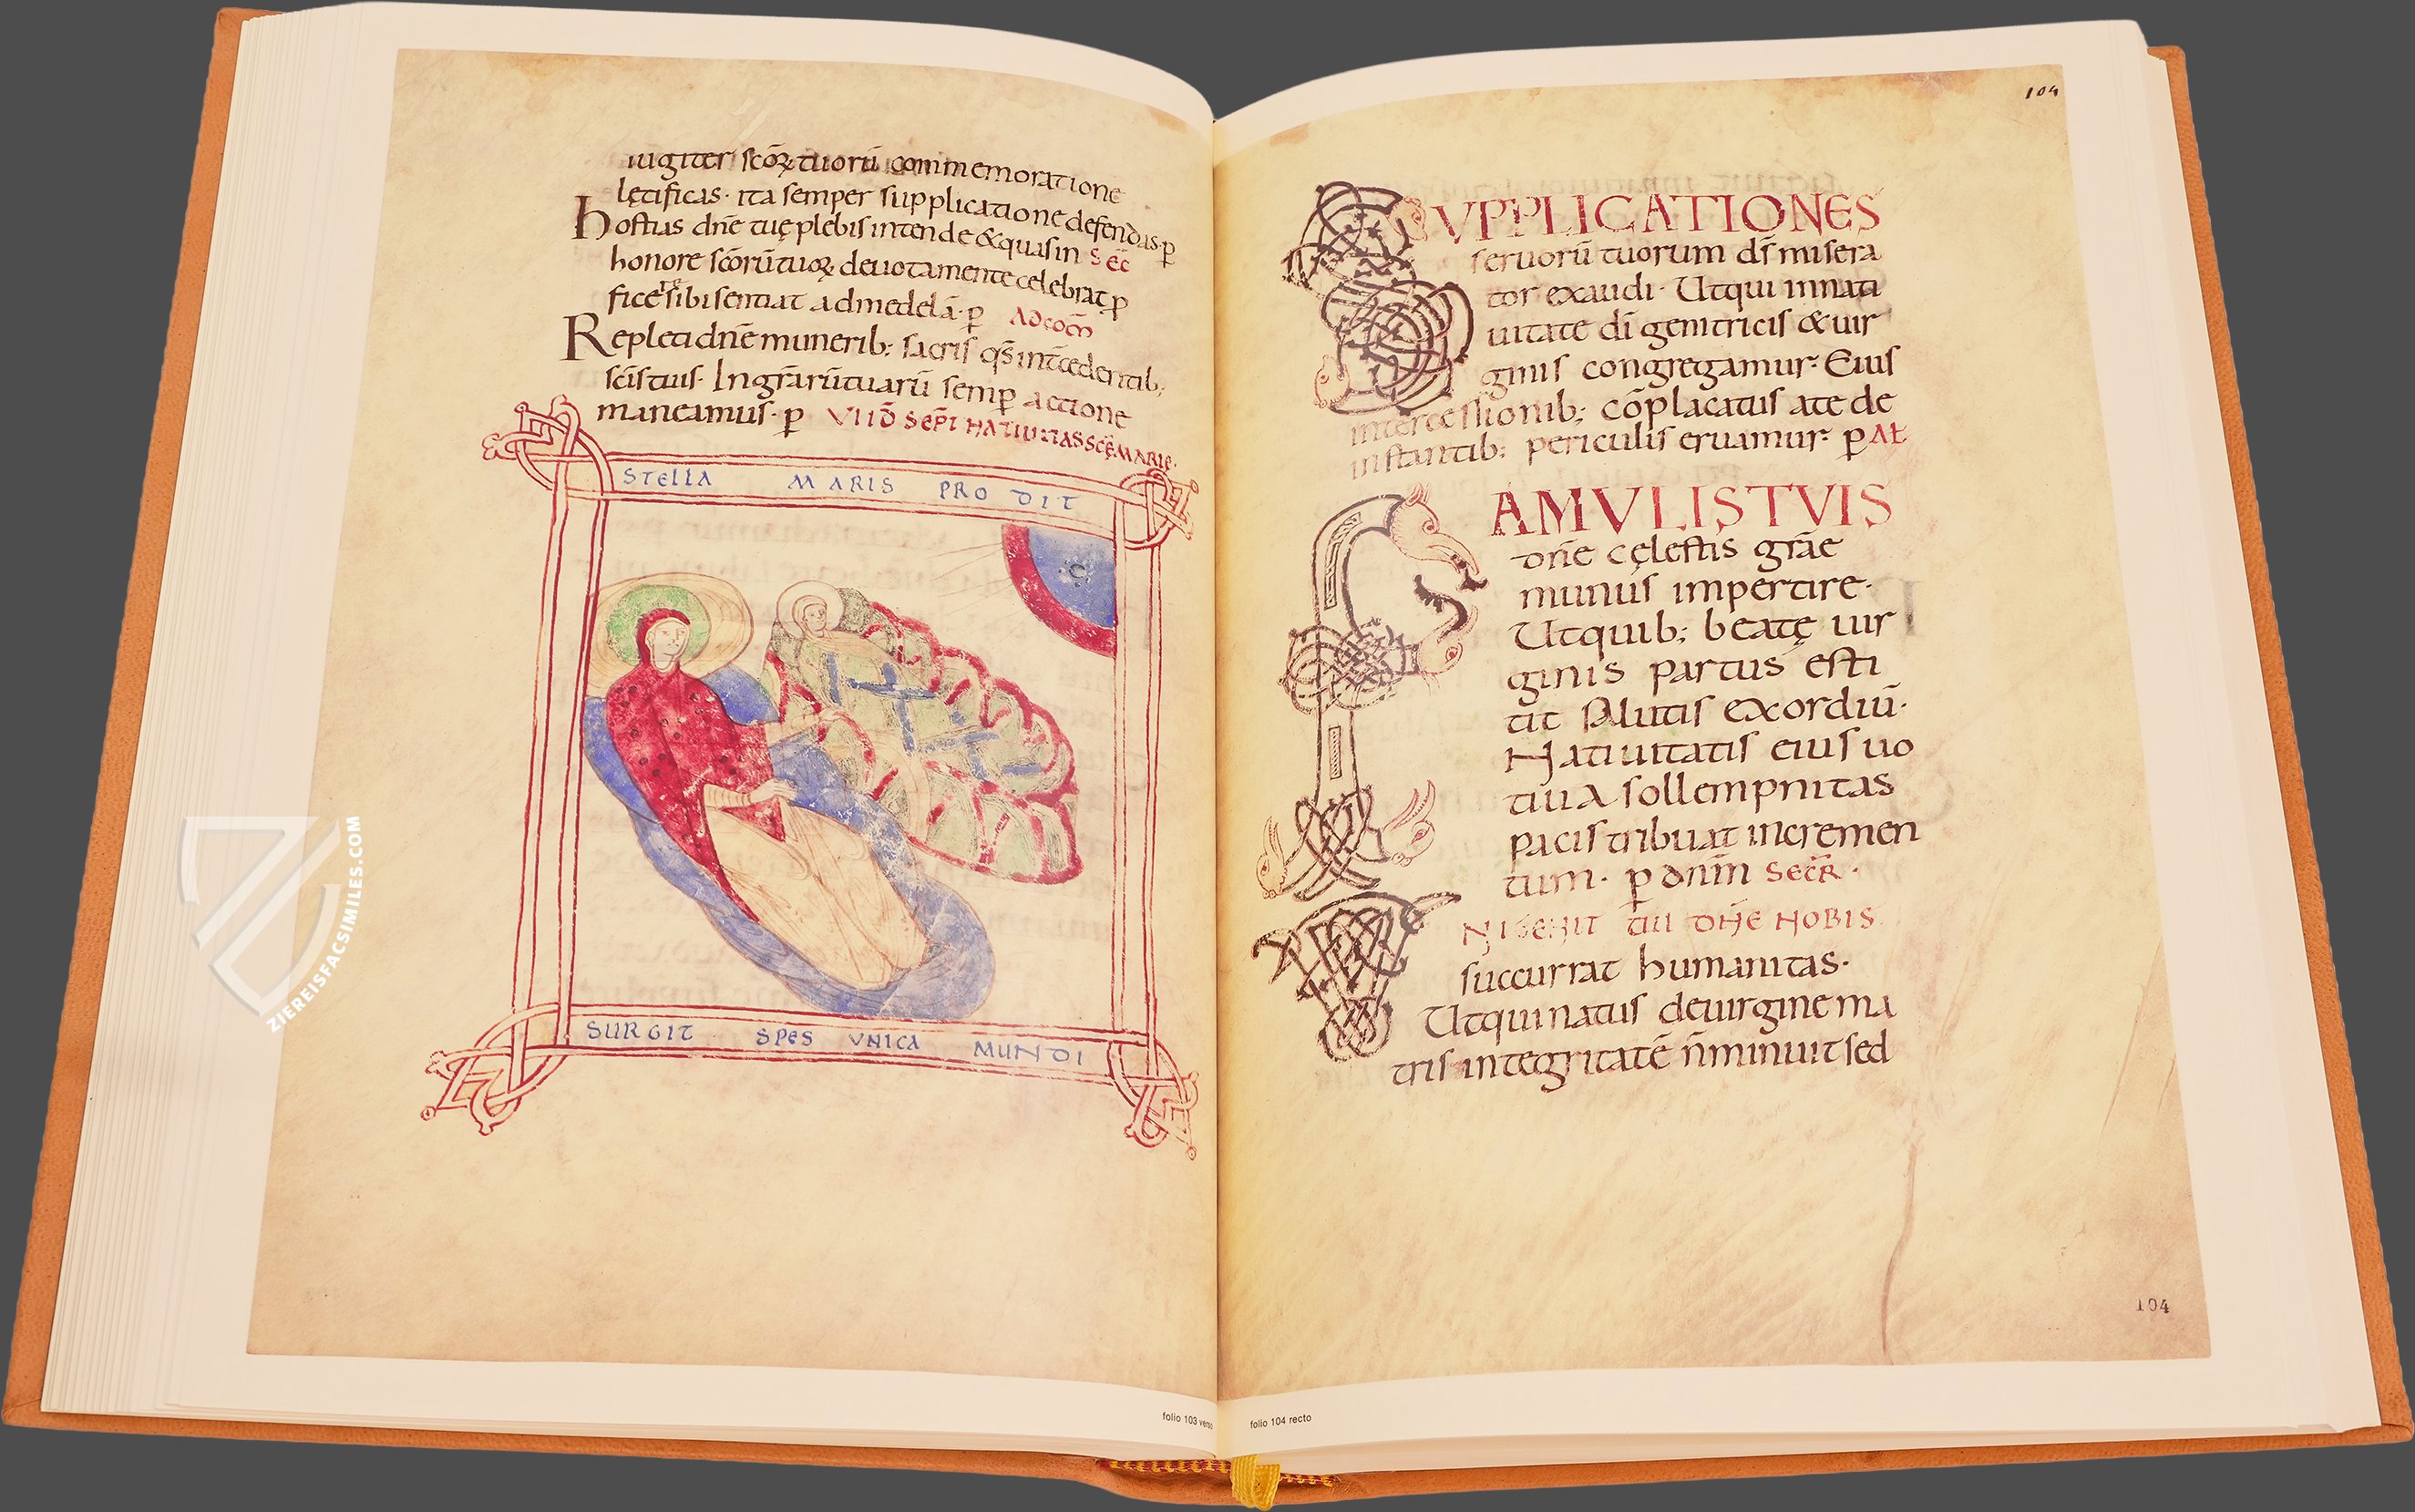 iugiter scōꝝ tuorū commemoratione
lętificas · ita semper supplicatione defendas · ꝑ
hostias dn̄e tuę plebis intende & quas in SEC̄
honore scōrū tuoꝝ deuota mente celebrat ꝑ
ficere sibi sentiat ad medelā · ꝑ AD COM̄
Repleti dn̄e munerib; sacris qs̄ int̄cedentib;
sc̄is tuis · In gr̄arū tuarū semꝑ actione
maneamus · ꝑ VI ID SEPT NATIUITAS SCĘ MARIE ·
STELLA MARIS PRODIT
SURGIT SPES VNICA MUNDI
folio 103 verso
104
SVPPLICATIONES
seruorū tuorum ds̄ misera
tor exaudi · Ut qui in nati
uitate dī genitricis & uir
ginis congregamur · Eius
intercessionib; cōplacatus a te de
instantib; periculis eruamur · ꝑ Aƚ
FAMVLIS TVIS
dn̄e cęlestis gr̄ae
munus impertire ·
Ut quib; beatę uir
ginis partus esti
tit salutis exordiū ·
Natiuitatis eius uo
tiua sollempnitas
pacis tribuat incremen
tum · ꝑ dnm̄ SECR̄ ·
VNIGENITI TUI DN̄E NOBIS
succurrat humanitas ·
Ut qui natus de uirgine ma
tris integritatē n̄ minuit sed
104
folio 104 recto
ZIEREISFACSIMILES.COM